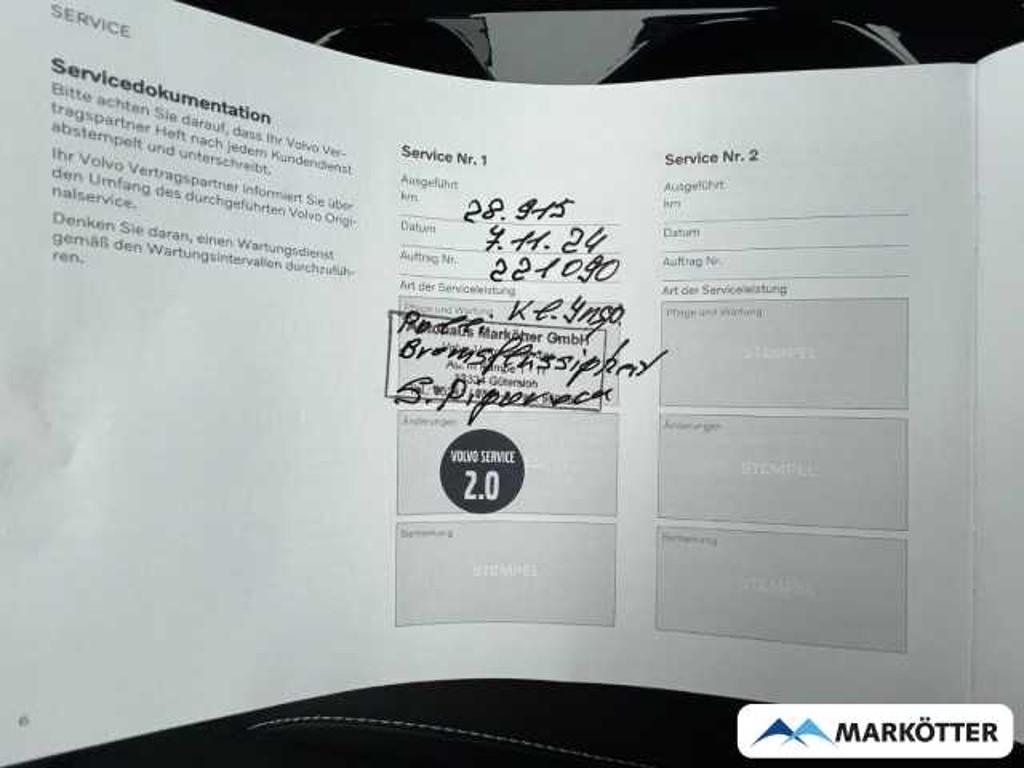 SERVICE
Servicedokumentation
Bitte achten Sie darauf, dass Ihr Volvo Ver-
tragspartner Heft nach jedem Kundendienst
abstempelt und unterschreibt.
Ihr Volvo Vertragspartner informiert Sie über
den Umfang des durchgeführten Volvo Origi-
nalservice.
Denken Sie daran, einen Wartungsdienst
gemäß den Wartungsintervallen durchzufüh-
ren.
6
Service Nr. 1
Ausgeführt
km 28.915
Datum 7.11.24
Auftrag Nr. 221090
Art der Serviceleistung
Pflege und Wartung Kl. Insp.
Autohaus Markötter GmbH
Bremsflüssigkeit
33334 Gütersloh
Änderungen
VOLVO SERVICE
2.0
Bemerkung
STEMPEL
Service Nr. 2
Ausgeführt
km
Datum
Auftrag Nr.
Art der Serviceleistung
Pflege und Wartung
STEMPEL
Änderungen
STEMPEL
Bemerkung
STEMPEL
MARKÖTTER